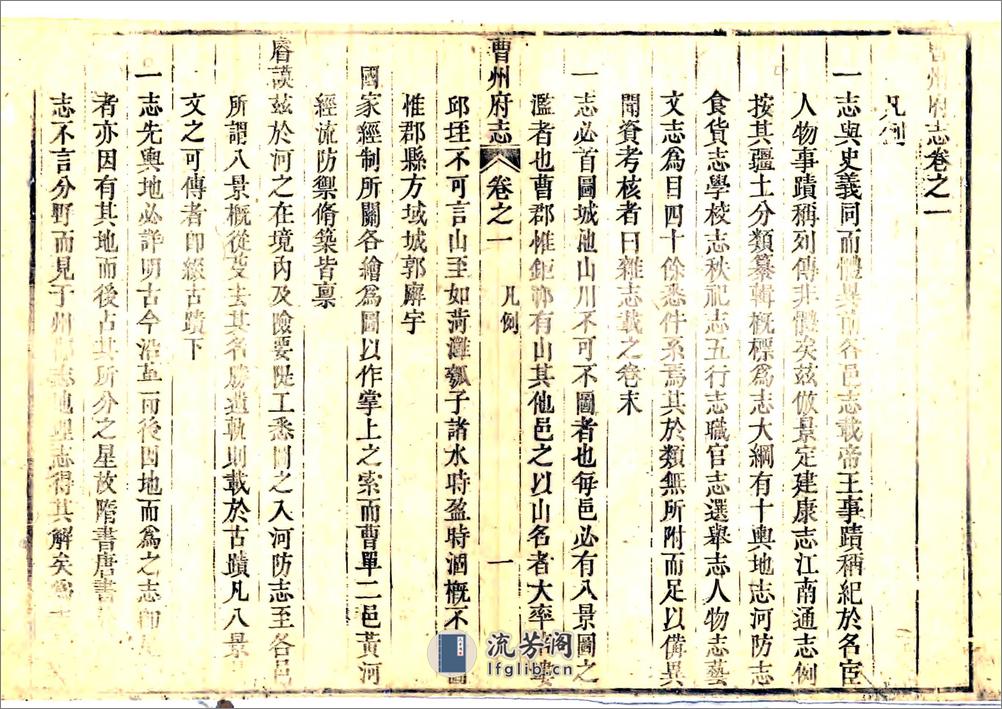 曹州府志卷之一
凡例
一志與史義同而體異前各邑志載帝王事蹟稱紀於名宦
人物事蹟稱列傳非體矣茲倣景定建康志江南通志例
按其疆土分類纂輯概標爲志大綱有十輿地志河防志
食貨志學校志秩祀志五行志職官志選舉志人物志藝
文志爲目四十餘悉件系焉其於類無所附而足以備異
聞資考核者曰雜志載之卷末
一志必首圖城池山川不可不圖者也每邑必有八景圖之
濫者也曹郡惟鉅鄆有山其他邑之以山名者大率
曹州府志
卷之一
凡例
一
邱垤不可言山至如菏灘瓠子諸水時盈時涸概不
惟郡縣方域城郭廨宇
國家經制所關各繪爲圖以作掌上之索而曹單二邑黃河
經流防禦脩築皆稟
睿謨茲於河之在境內及險要陡工悉圖之入河防志至各邑
所謂八景概從芟去其名勝遺軌則載於古蹟凡八景
文之可傳者即綴古蹟下
一志先輿地必詳明古今沿革而後因地而爲之志
者亦因有其地而後占其所分之星故隋書唐書
志不言分野而見于州郡志地理志得其解矣
流芳閣
lfglib.cn